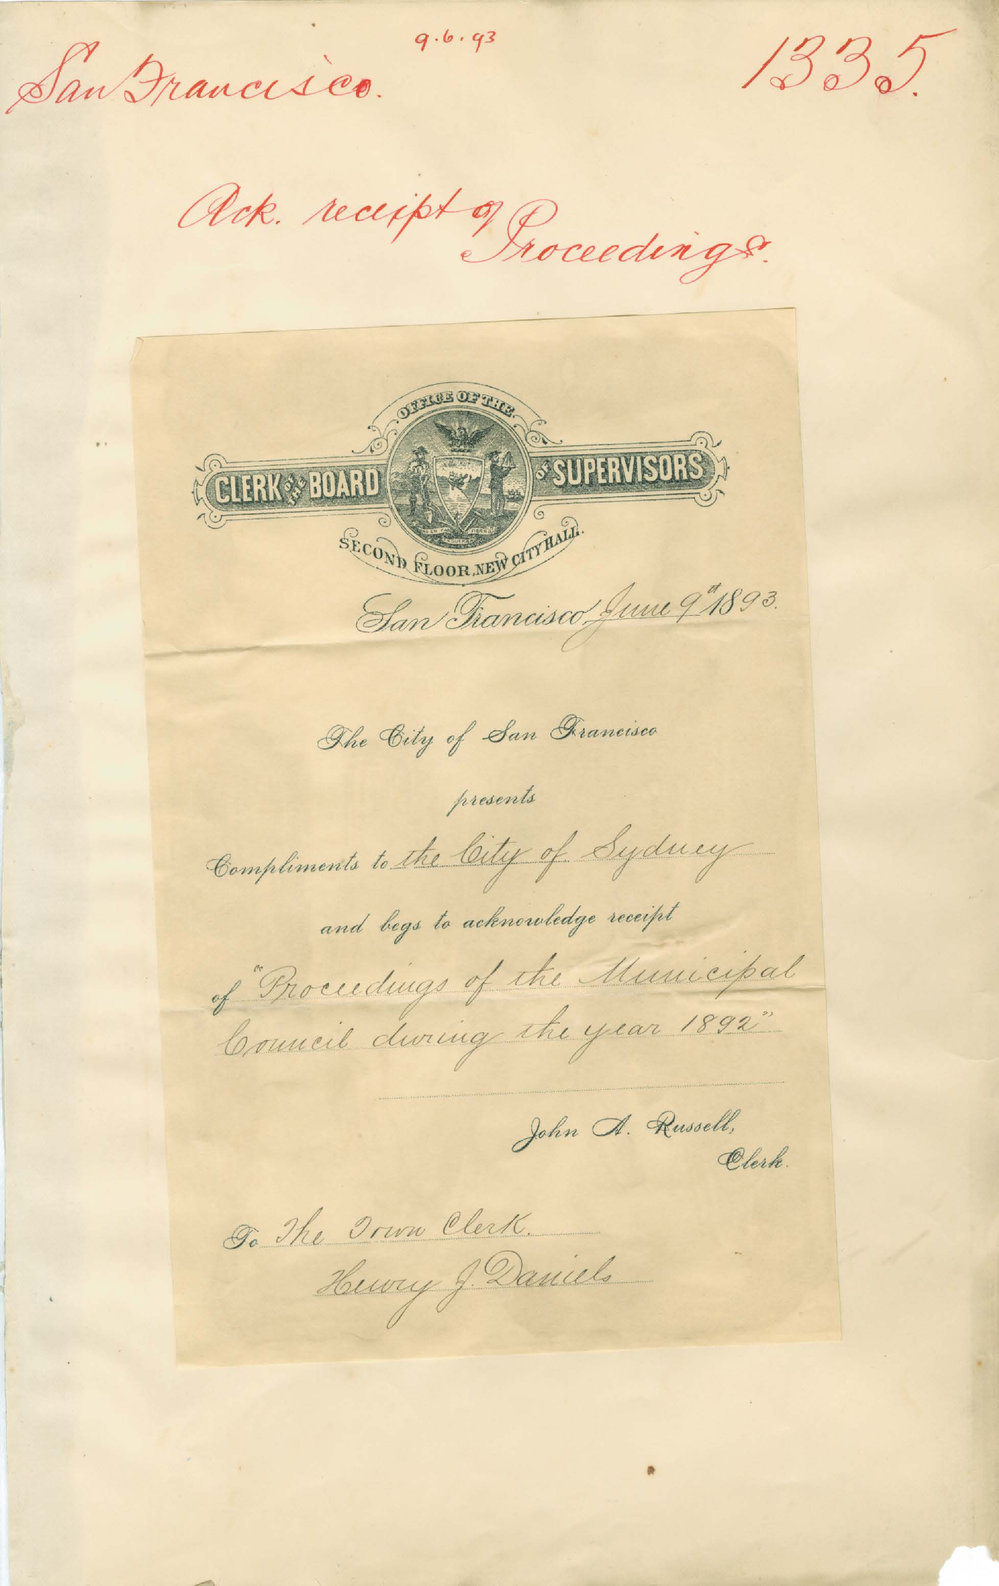 9.6.93
San Francisco.
1335.
Ack. receipt of
Proceedings.
OFFICE OF THE
CLERK OF THE BOARD OF SUPERVISORS
SECOND FLOOR, NEW CITY HALL.
San Francisco June 9th 1893.
The City of San Francisco
presents
Compliments to the City of Sydney
and begs to acknowledge receipt
of "Proceedings of the Municipal
Council during the year 1892"
John A. Russell,
Clerk.
To The Town Clerk.
Henry J. Daniels